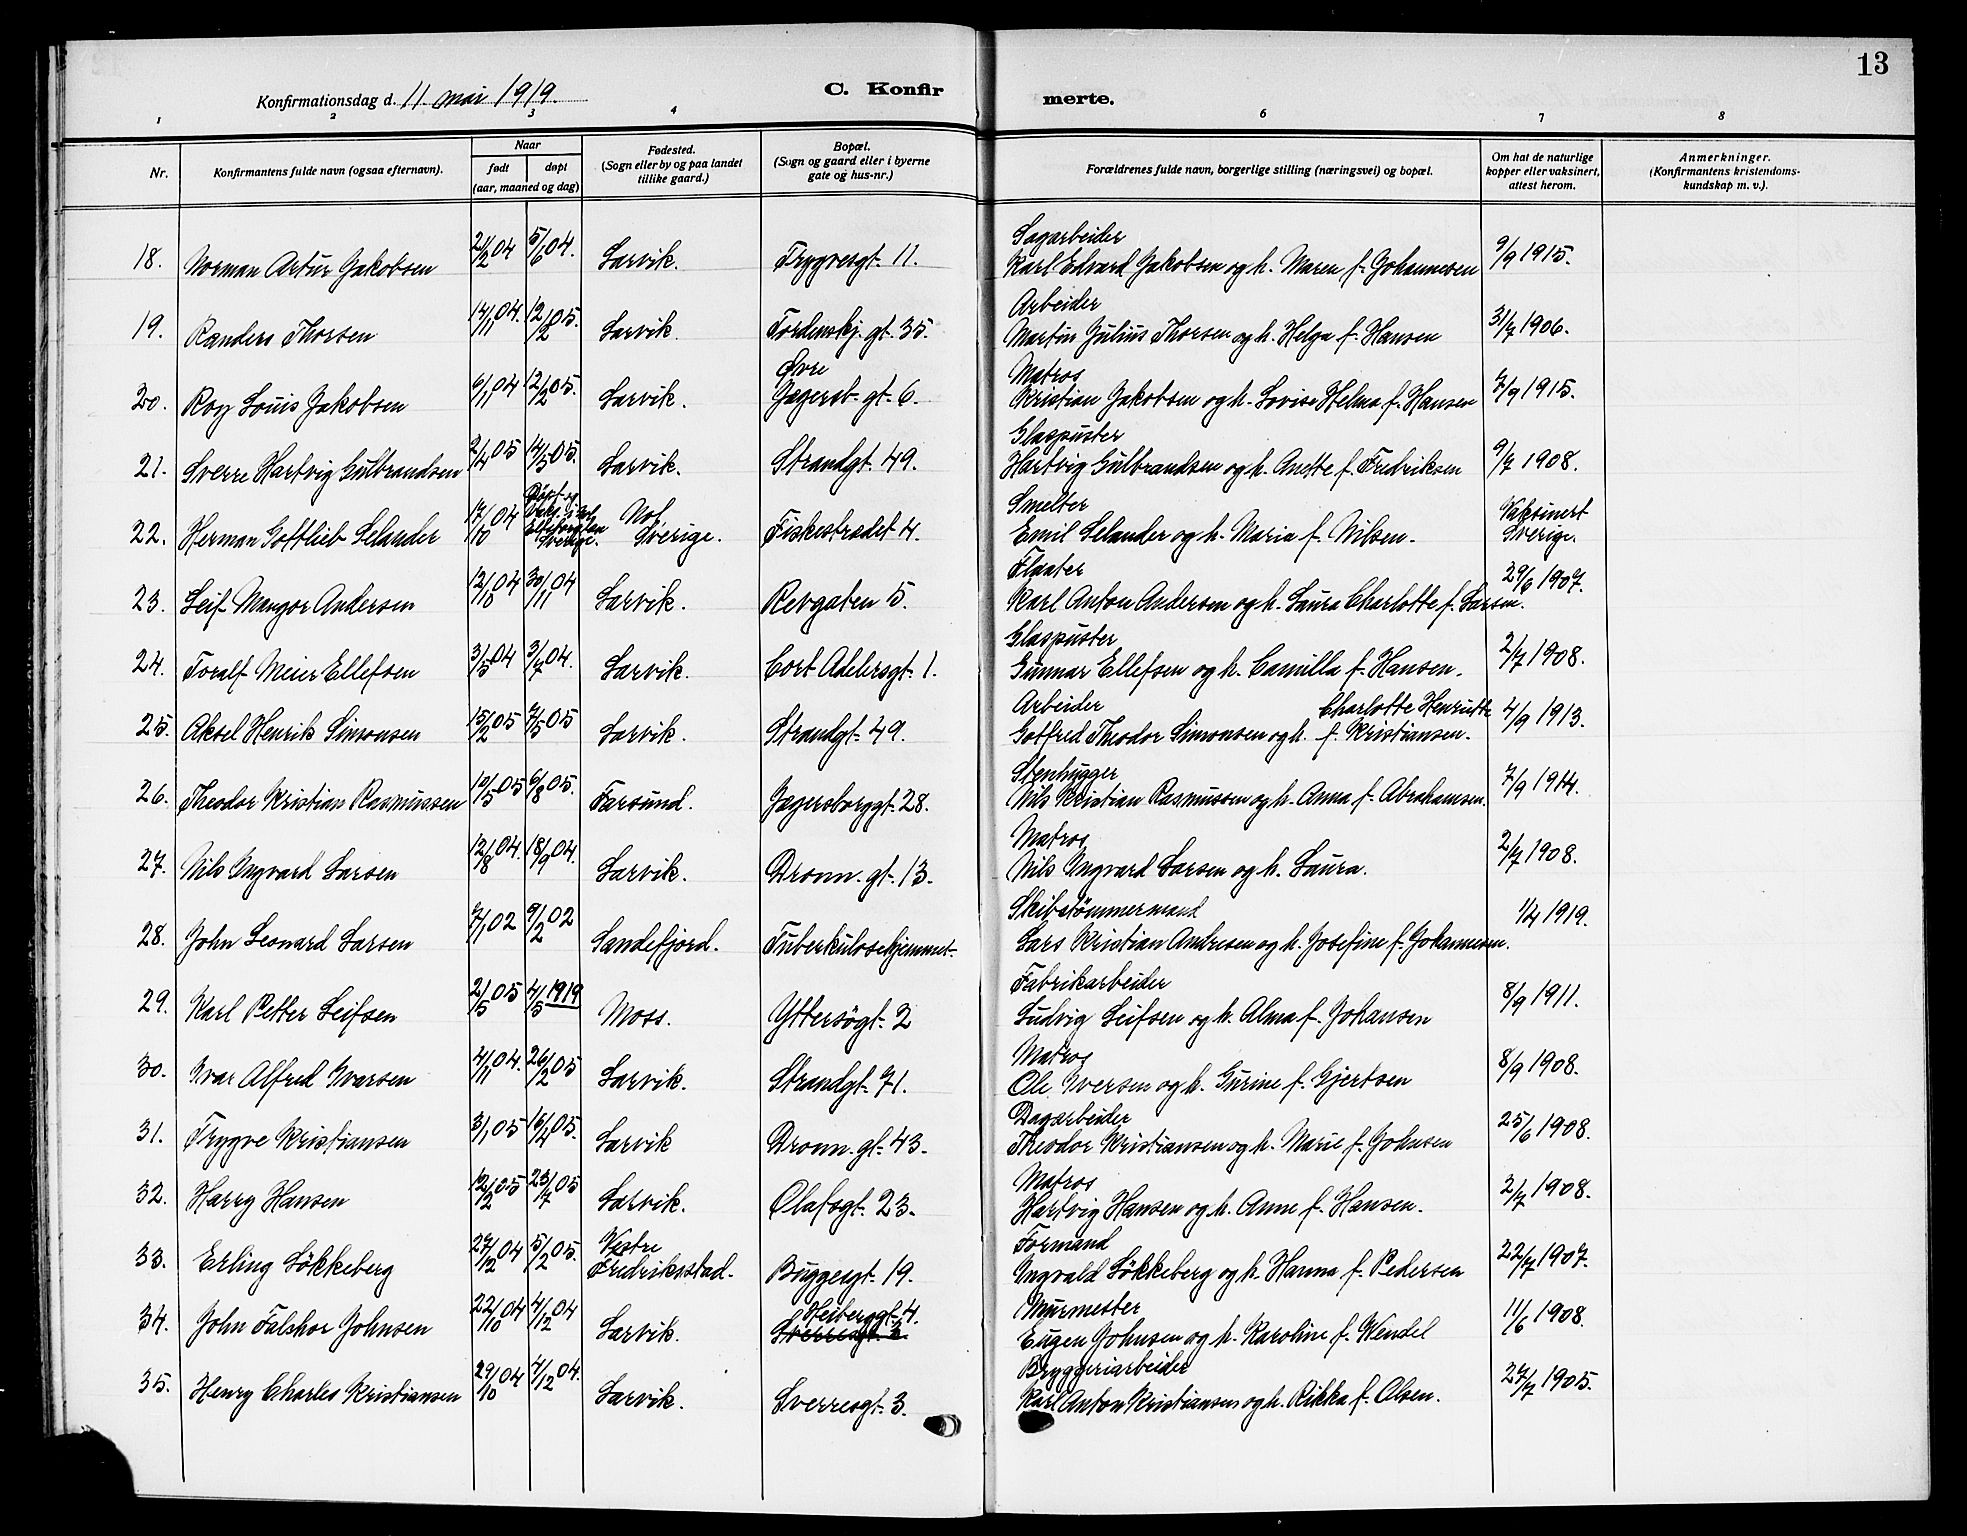 13
Konfirmationsdag d. 11. mai 1919.
C. Konfirmerte.
1 2 3 4 6 7 8
Nr. Konfirmantens fulde navn (ogsaa efternavn). Naar født døpt (aar, maaned og dag) Fødested. (Sogn eller by og paa landet tillike gaard.) Bopæl. (Sogn og gaard eller i byerne gate og hus-nr.) Forældrenes fulde navn, borgerlige stilling (næringsvei) og bopæl. Om hat de naturlige kopper eller vaksinert, attest herom. Anmerkninger. (Konfirmantens kristendoms-kundskap m. v.).
18. Norman Artur Jakobsen 21/2 04 5/6 04. Larvik. Trygvesgt. 11. Sagarbeider Karl Edvard Jakobsen og h. Maren f. Johannesen 9/9 1915.
19. Randers Thorsen 14/11 04. 12/2 05. Larvik. Tordenskj. gt. 35. Arbeider Martin Julius Thorsen og h. Helga f. Hansen 31/7 1906.
20. Roy Louis Jakobsen 6/11 04 12/2 05. Larvik. Øvre Jegersb. gt. 6. Matros Kristian Jakobsen og h. Lovise Helma f. Hansen 7/9 1915.
21. Sverre Hartvig Gulbrandsen 2/4 05 14/5 05. Larvik. Strandgt. 49. Glaspuster Hartvig Gulbrandsen og h. Anette f. Fredriksen 9/7 1908.
22. Herman Gottlieb Selander 17/10 04 Døpt og Sverige. Nol, Sverige. Fiskestrædet 4. Smelter Emil Selander og h. Maria f. Nilsen. Vaksinert Sverige.
23. Leif Mangor Andersen 12/10 04 30/11 04 Larvik. Revgaten 5. Fløater Karl Anton Andersen og h. Laura Charlotte f. Larsen. 29/6 1907.
24. Toralf Meier Ellefsen 3/5 04 3/7 04. Larvik. Cort Adelersgt. 1. Glaspuster Gunnar Ellefsen og h. Camilla f. Hansen. 2/7 1908.
25. Aksel Henrik Simonsen 15/2 05 7/5 05 Larvik. Strandgt. 49. Arbeider Gotfred Theodor Simonsen og h. Charlotte Henriette f. Kristiansen. 4/9 1913.
26. Theodor Kristian Rasmussen 10/5 05 6/8 05. Farsund. Jegersborggt. 28. Stenhugger Nils Kristian Rasmussen og h. Anna f. Abrahamsen. 7/9 1914.
27. Nils Ingvard Larsen 12/8 04. 18/9 04. Larvik. Dronn. gt. 13. Matros Nils Ingvard Larsen og h. Laura. 2/7 1908.
28. John Leonard Larsen 7/1 02 9/2 02 Sandefjord. Tuberkulosehjemmet. Skibstømmermand Lars Kristian Andresen og h. Josefine f. Johannesen. 1/4 1919.
29. Karl Petter Leifsen 2/5 05 4/5 1919 Moss. Yttersøgt. 2 Fabrikarbeider Ludvig Leifsen og h. Alma f. Johansen 8/9 1911.
30. Ivar Alfred Iversen 4/11 04. 26/2 05 Larvik. Strandgt. 71. Matros Ole Iversen og h. Gurine f. Gjertsen 8/9 1908.
31. Trygve Kristiansen 3/1 05 16/4 05. Larvik Dronn. gt. 43. Dagarbeider Theodor Kristiansen og h. Marie f. Johnsen 25/6 1908.
32. Harry Hansen 12/2 05 23/7 05 Larvik. Olafsgt. 23. Matros Hartvig Hansen og h. Anne f. Hansen. 2/7 1908.
33. Erling Løkkeberg 27/12 04 5/2 05. Vestre Fredriksstad. Buggesgt. 19. Formand Ingvald Løkkeberg og h. Hanna f. Pedersen 22/7 1907.
34. John Falshor Johnsen 22/10 04 4/12 04 Larvik. Heiberggt. 4. Sverresgt. 3. Murmester Eugen Johnsen og h. Karoline f. Wendel 11/6 1908.
35. Henry Charles Kristiansen 29/10 04 4/12 04. Larvik. Sverresgt. 3. Bryggeriarbeider Karl Anton Kristiansen og h. Rikka f. Olsen. 27/7 1905.